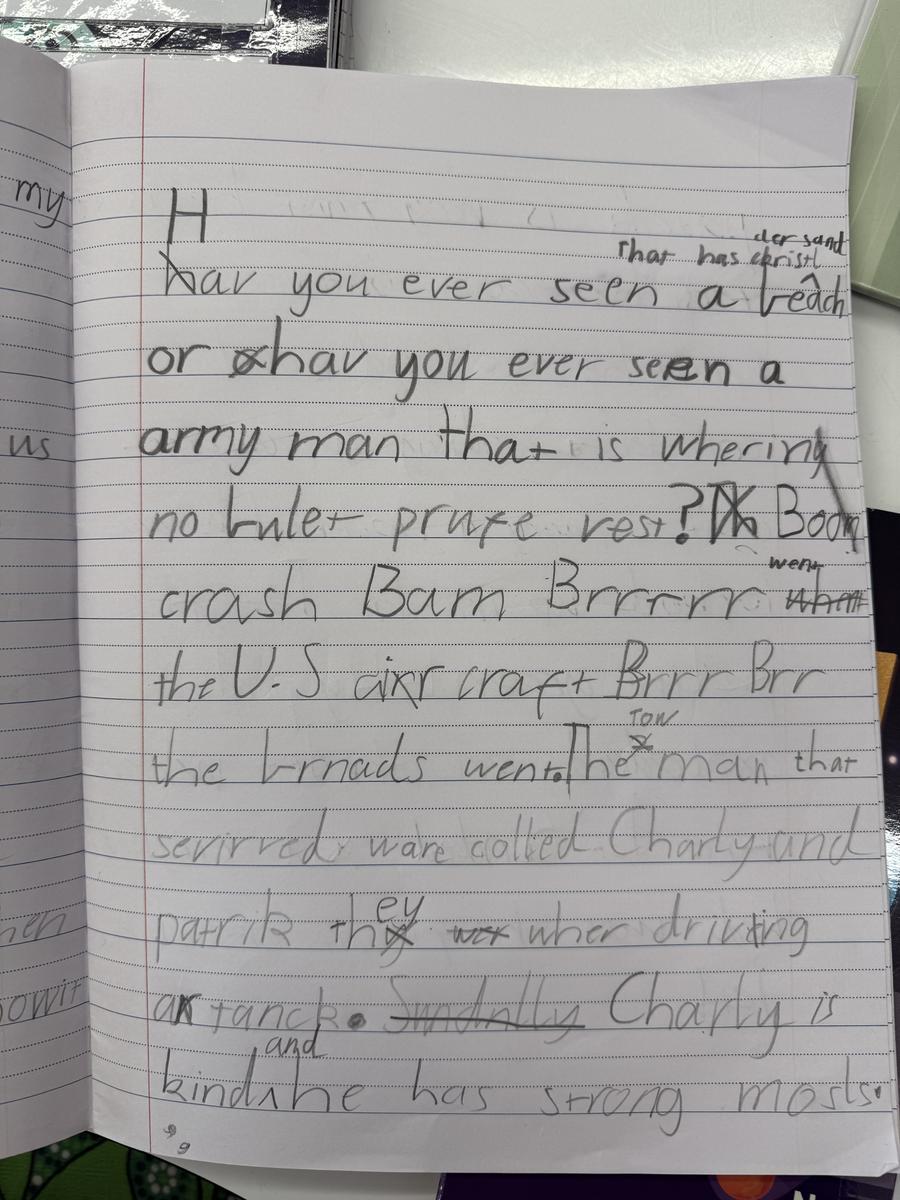 my
us
hen
owit
H
der sand
That has christl
hav you ever seen a beach
or hav you ever seen a
army man that is whering
no bulet prufe vest? Boom
crash Bam Brrrrrr went
the U.S air craft Brrr Brr
Tow
the brnads went. The man that
servirred ware colled Charly and
patrik they wher driving
a tanck. Sundnlly Charly is
and
kind he has strong mosls.